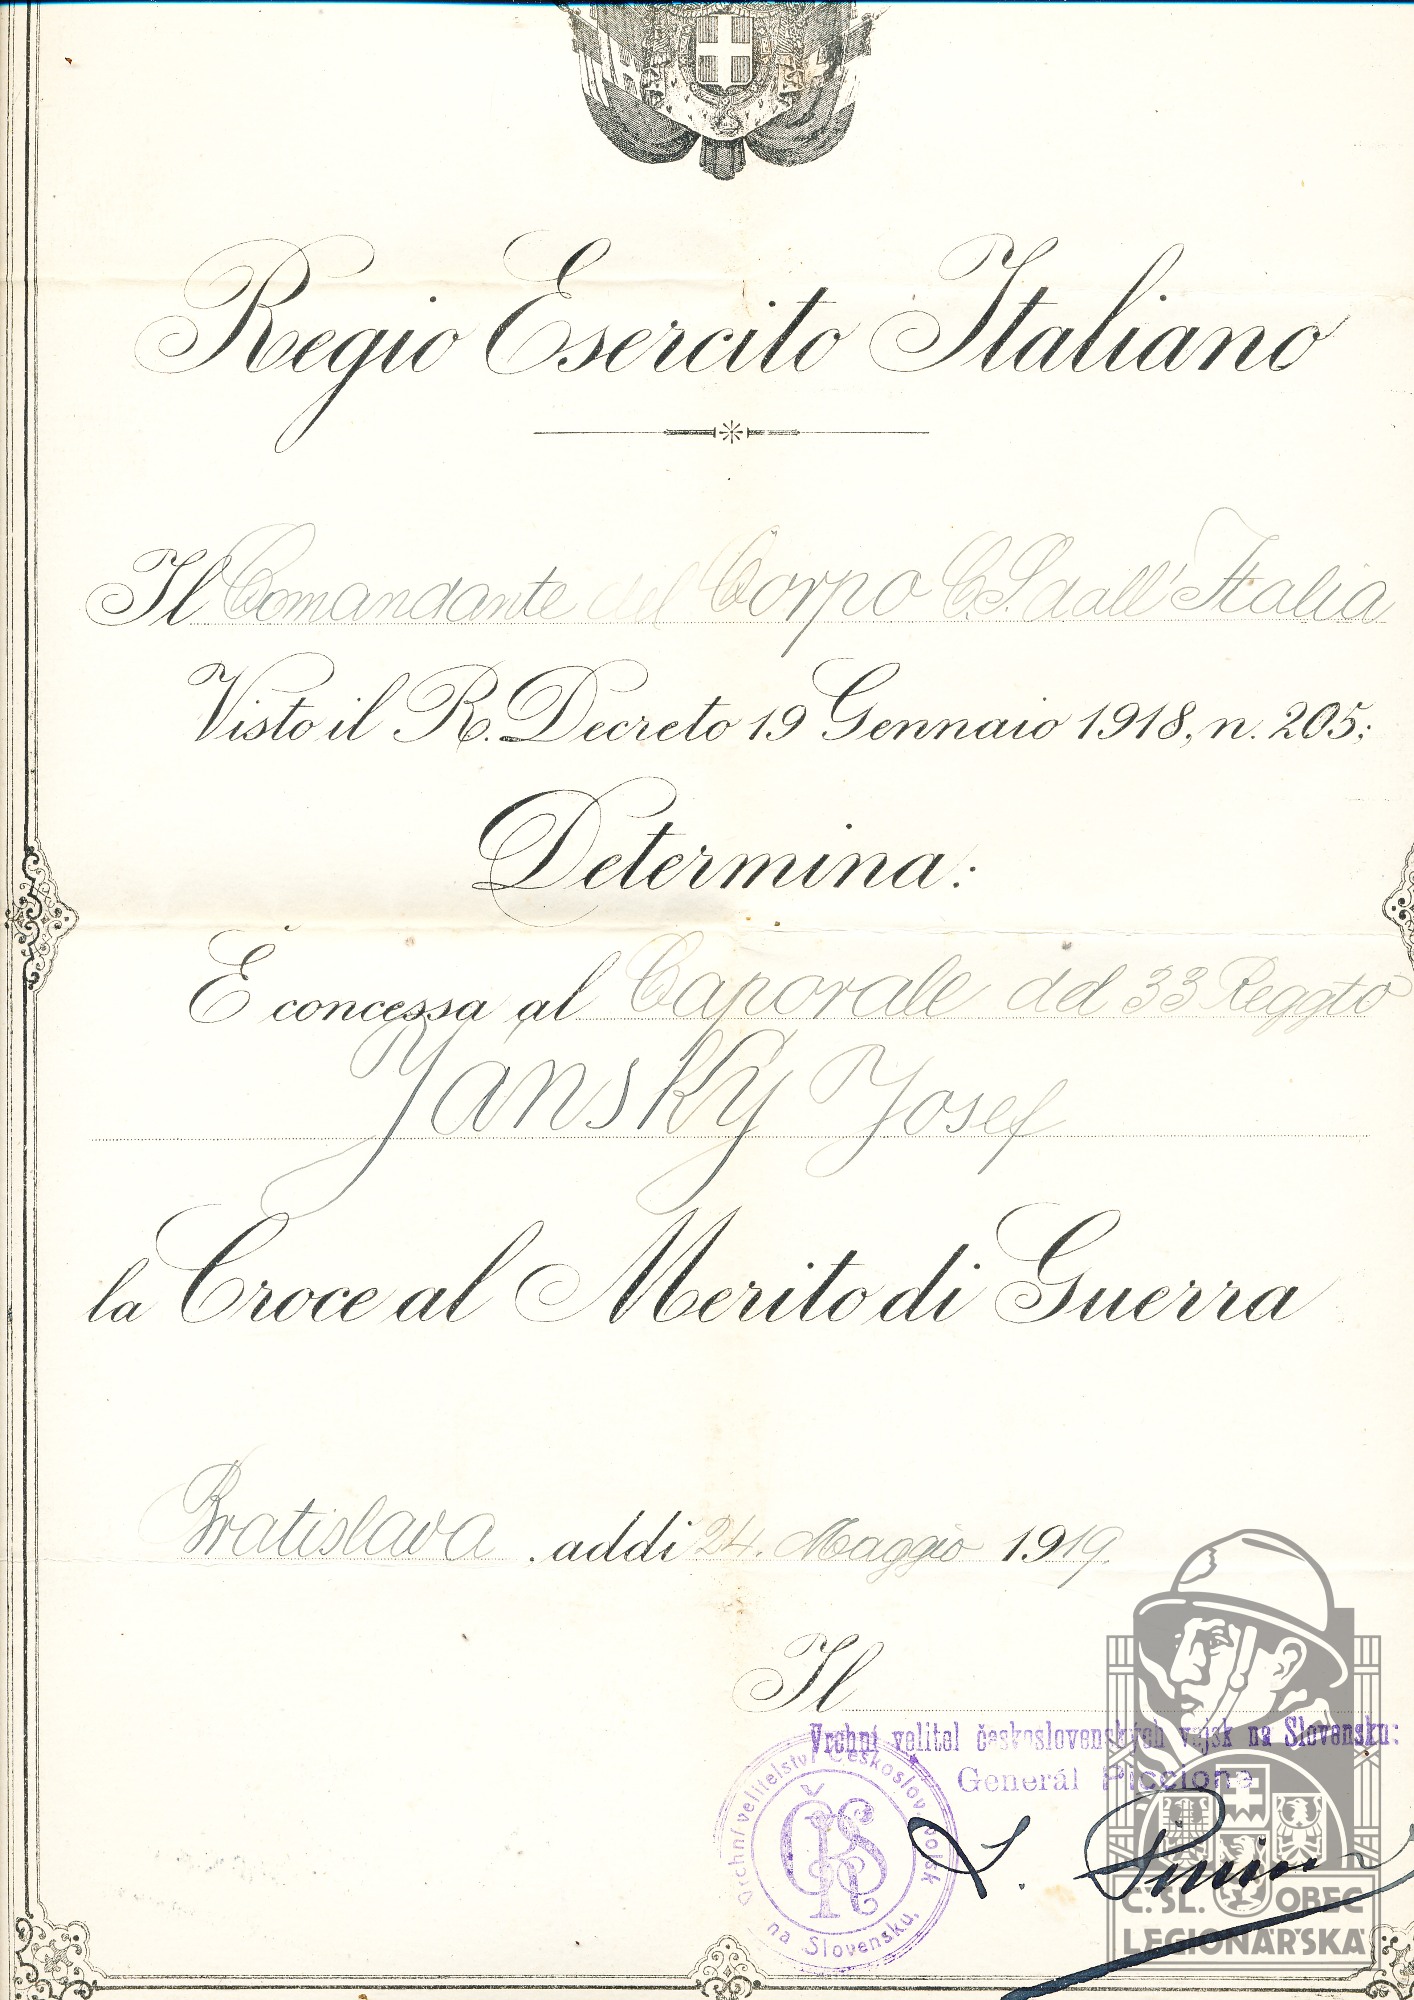 Regio Esercito Italiano
Il Comandante del Corpo C.S. dall' Italia
Visto il R. Decreto 19 Gennaio 1918, n. 205;
Determina:
È concessa al Caporale del 33 Reggto
Janský Josef
la Croce al Merito di Guerra
Bratislava . addi 24. Maggio 1919.
Il
Vrchní velitel československých vojsk na Slovensku:
Generál Piccione
Vrchní velitelství Českoslov. vojsk
na Slovensku.
ČSR
L. Piccione
Č. SL. OBEC
LEGIONÁŘSKÁ